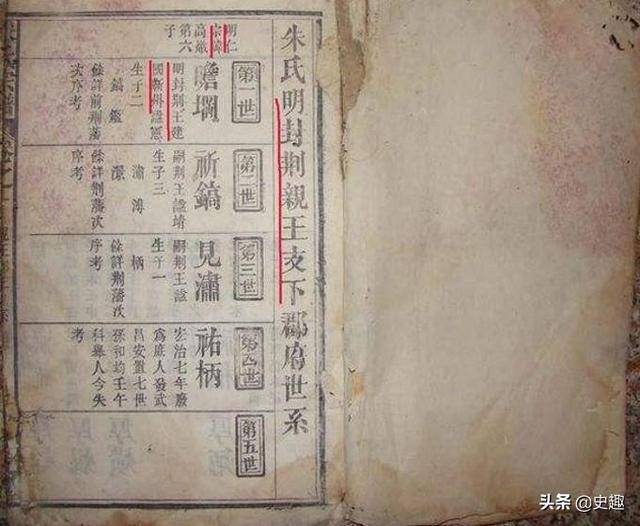 朱氏明封荆親王支下郡府世系
明仁
宗諱
高熾
第六
子
第一世
瞻堈
明封荆王建
國蘄州諡憲
生子二
鎬 鑑
餘詳前荆藩
次序考
第二世
祈鎬
嗣荆王諡靖
生子三
潚 溥
餘詳荆藩次
序考
第三世
見潚
嗣荆王諡
生子一
柄
餘詳荆藩次
序考
第四世
祐柄
宏治七年廢
爲庶人發武
昌安置七世
孫和均壬午
科舉人今失
考
第五世
头条 @史趣